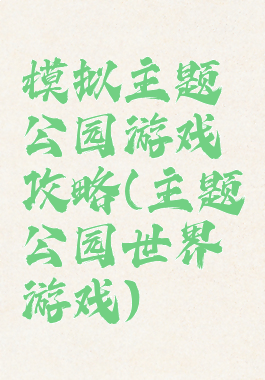 模拟主题
公园游戏
攻略(主题
公园世界
游戏)